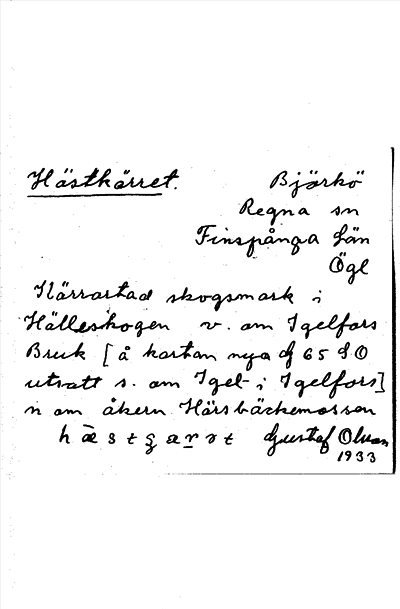 Hästkärret. Björkö
Regna sn
Finspånga län
Ögl
Kärrartad skogsmark i
Hälleskogen v. om Igelfors
Bruk [å kartan nya 65 SO
utsatt s. om Igel- i Igelfors]
n om åkern Härsbäckemossen
Gustaf Olsson
1933